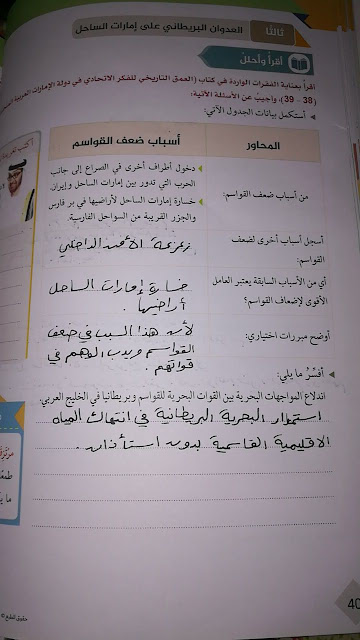 ثالثًا
العدوان البريطاني على إمارات الساحل
أقرأ وأحلل
أقرأ بعناية الفقرات الواردة في كتاب (العمق التاريخي للفكر الاتحادي في دولة الإمارات العربية
(38 - 39)، وأجيب عن الأسئلة الآتية:
أستكمل بيانات الجدول الآتي:
المحاور
أسباب ضعف القواسم
من أسباب ضعف القواسم:
دخول أطراف أخرى في الصراع إلى جانب
الحرب التي تدور بين إمارات الساحل وإيران.
خسارة إمارات الساحل لأراضيها في بر فارس
والجزر القريبة من السواحل الفارسية.
أسجل أسباب أخرى لضعف
القواسم:
زعزعة الأمن الداخلي
أي من الأسباب السابقة يعتبر العامل
الأقوى لإضعاف القواسم؟
خسارة إمارات الساحل
أراضيها.
أوضح مبررات اختياري:
لأن هذا السبب في ضعف
القواسم
في
قواتهم.
أفسّر ما يلي:
اندلاع المواجهات البحرية بين القوات البحرية للقواسم وبريطانيا في الخليج العربي.
استمرار البحرية البريطانية في انتهاك المياه
الاقليمية القاسمية بدون استأذان.
40